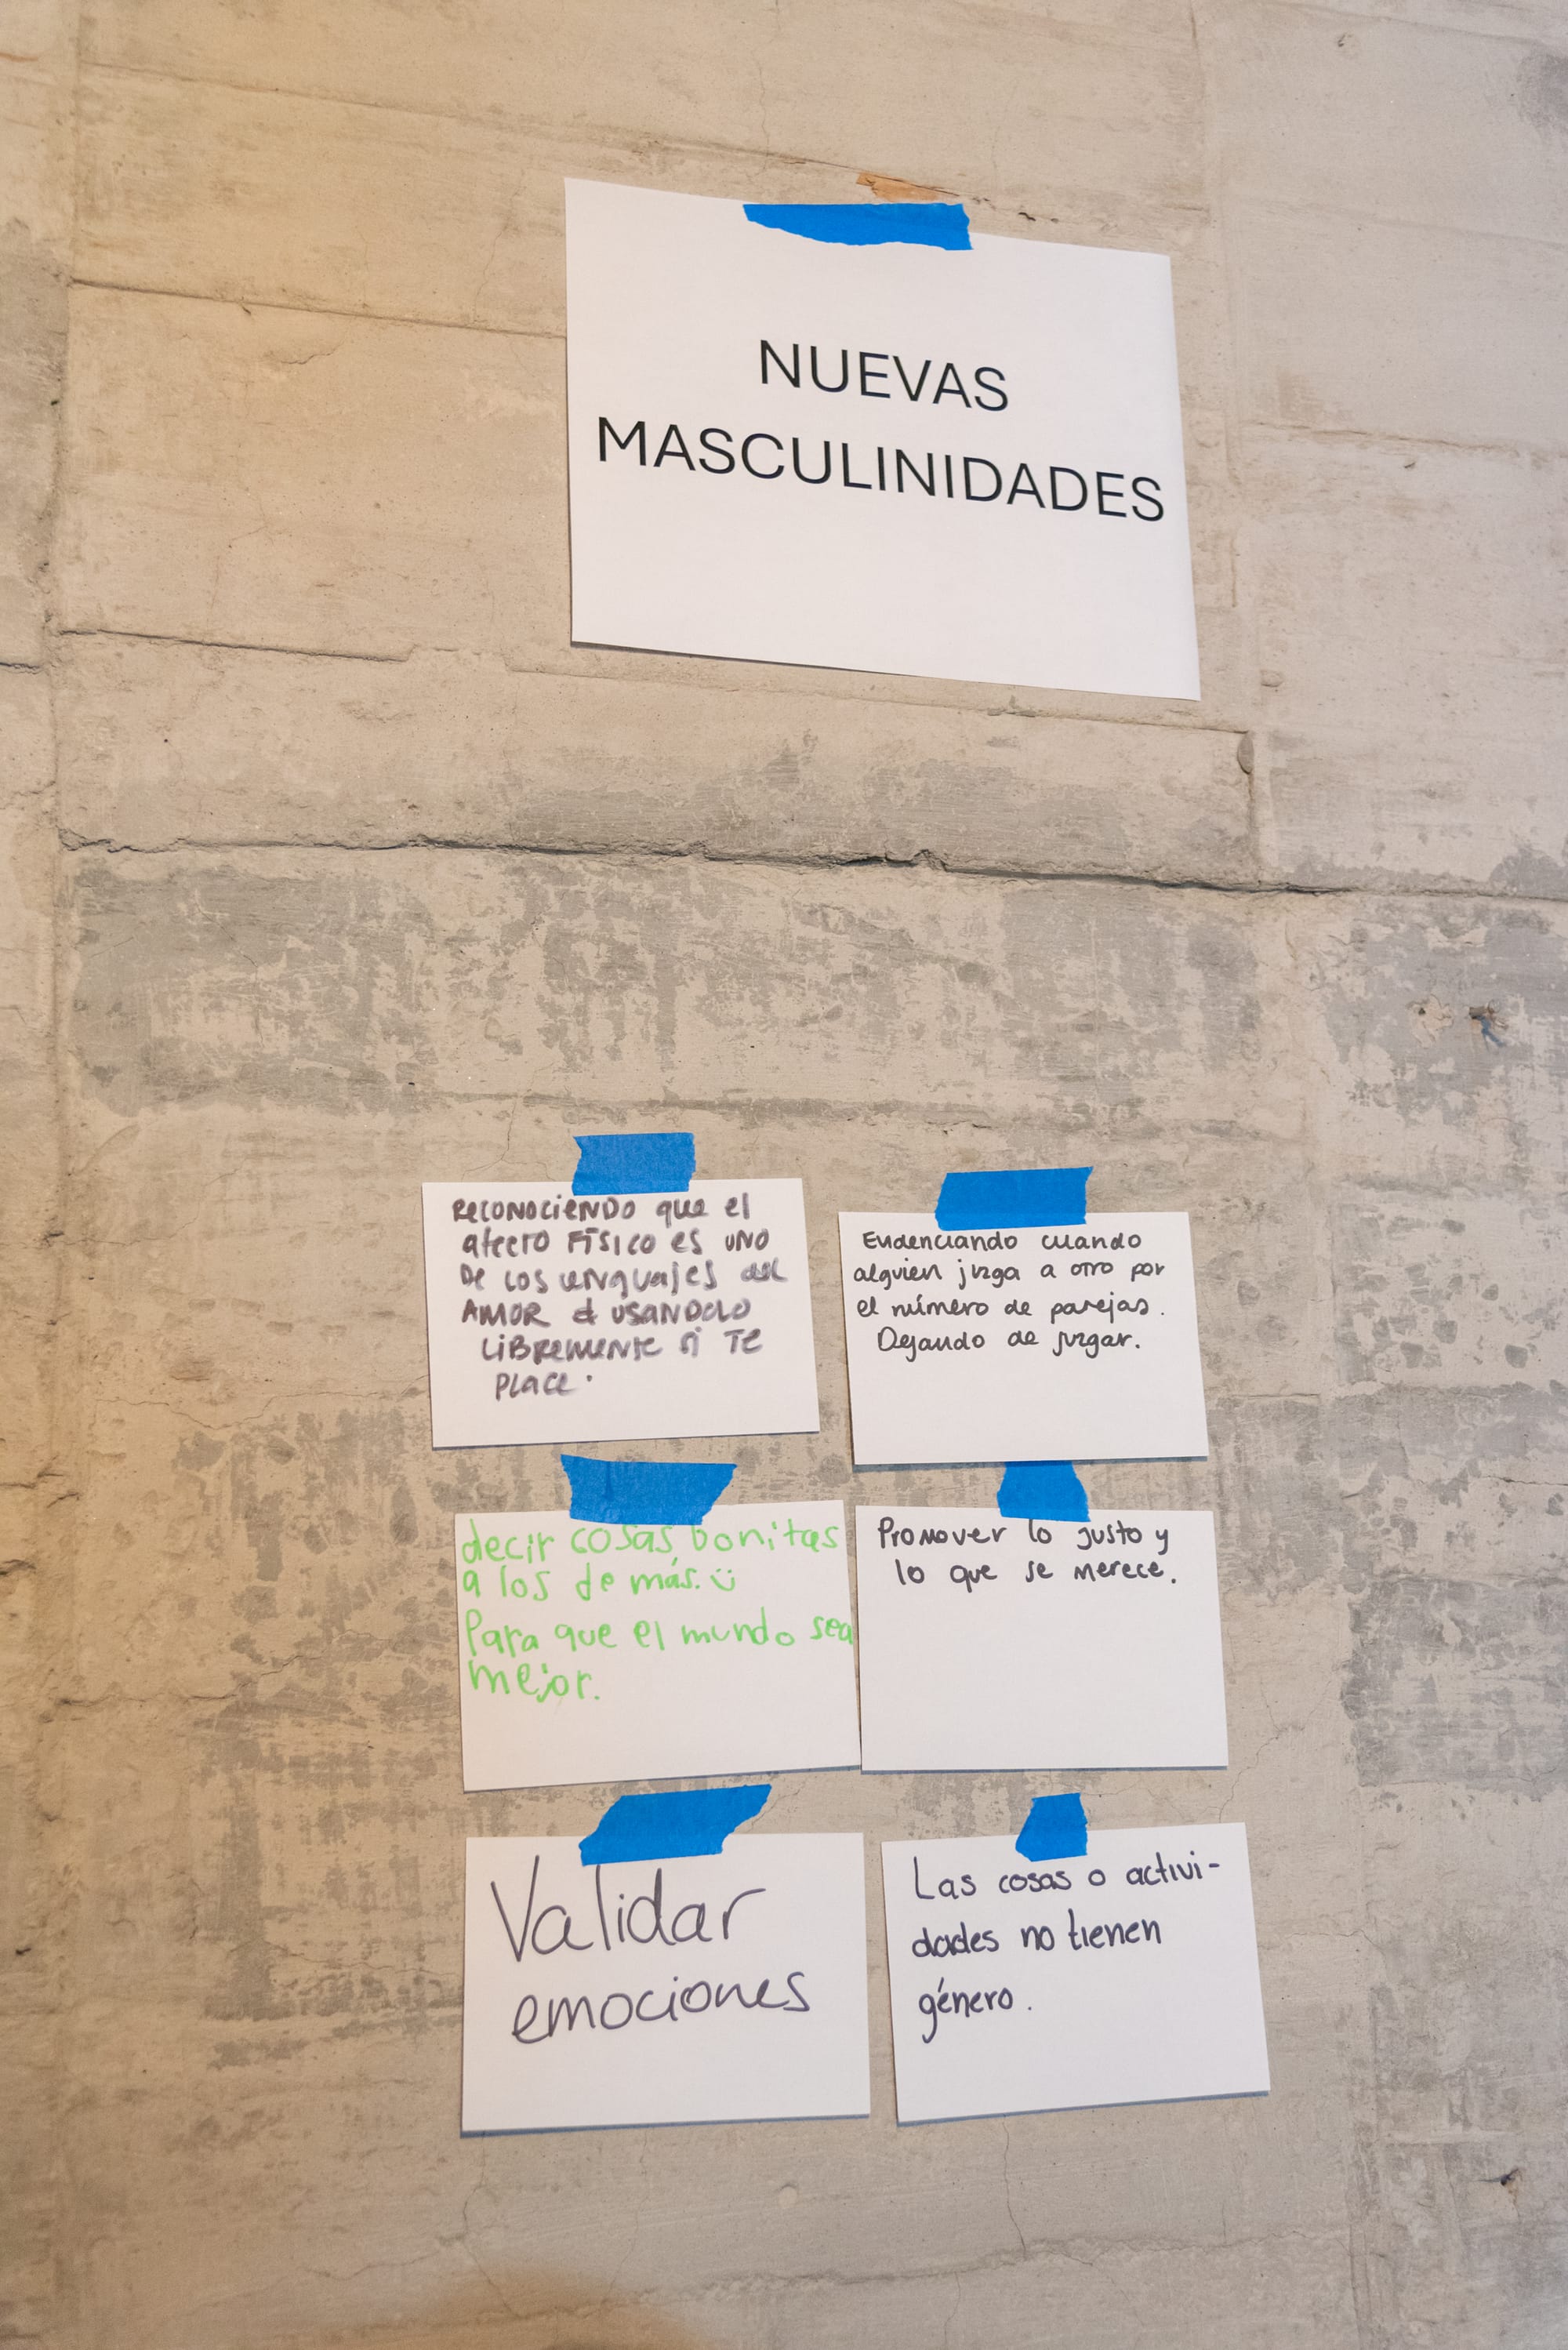 NUEVAS
MASCULINIDADES
RECONOCIENDO que el
afecto FÍSICO es UNO
De LOS lenguajes del
AMOR & USANDOLO
LIBREMENTE si TE
PLACE.
Evidenciando cuando
alguien juzga a otro por
el número de parejas.
Dejando de juzgar.
decir cosas bonitas
a los de más. ü
Para que el mundo sea
mejor.
Promover lo justo y
lo que se merece.
Validar
emociones
Las cosas o activi-
dades no tienen
género.